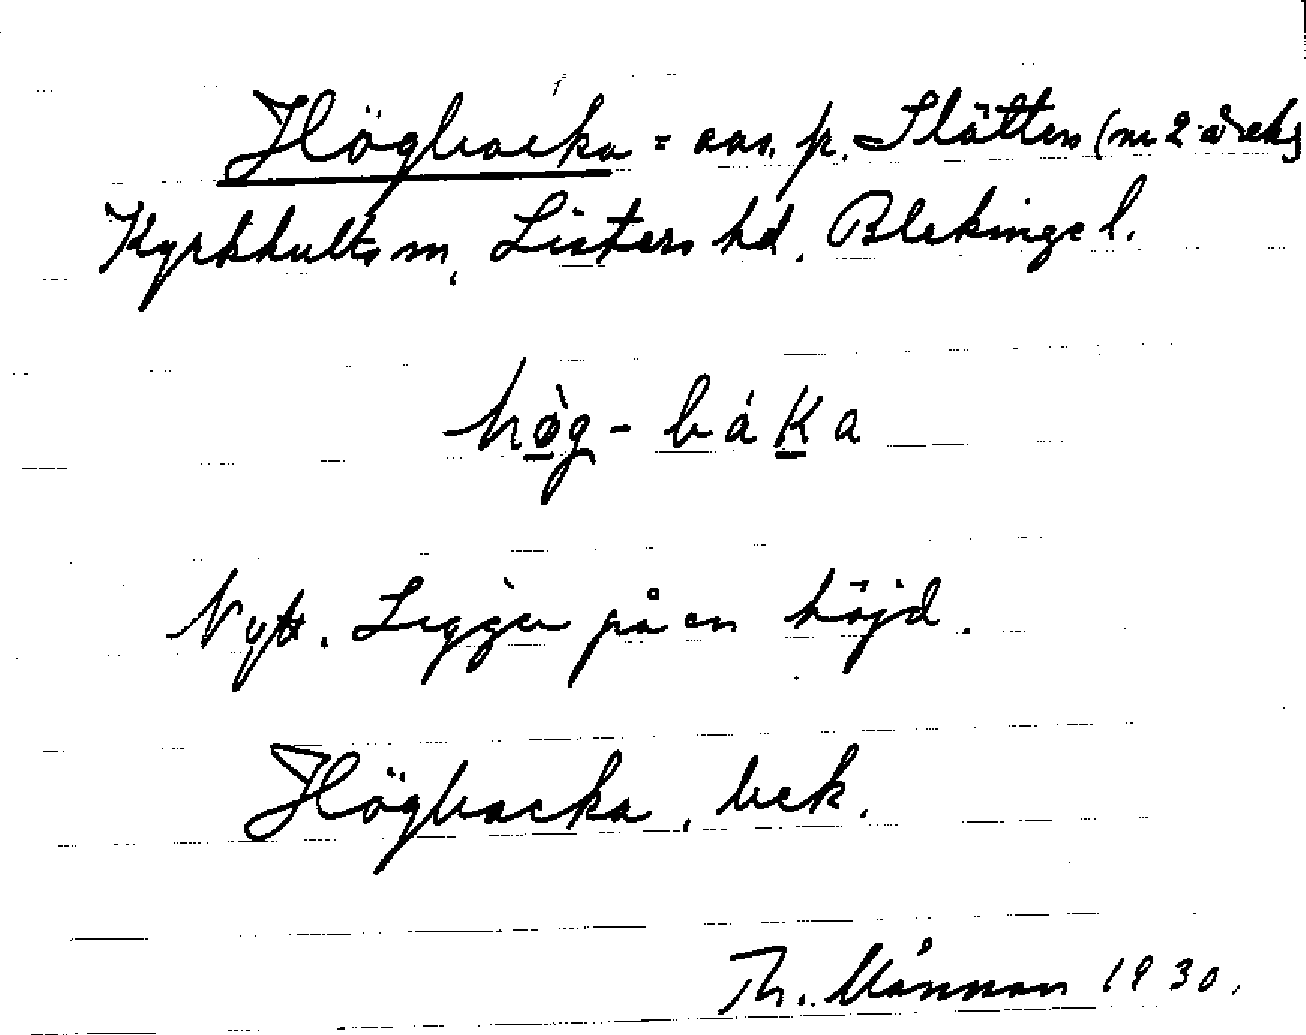 Högbacka = avs. fr. Slätten (nr 2
Kyrkhults sn, Listers hd, Blekinge l.
hø̀g - báKa
Nytt. Ligger på en höjd.
Högbacka, bek.
Th. Månnson 1930.